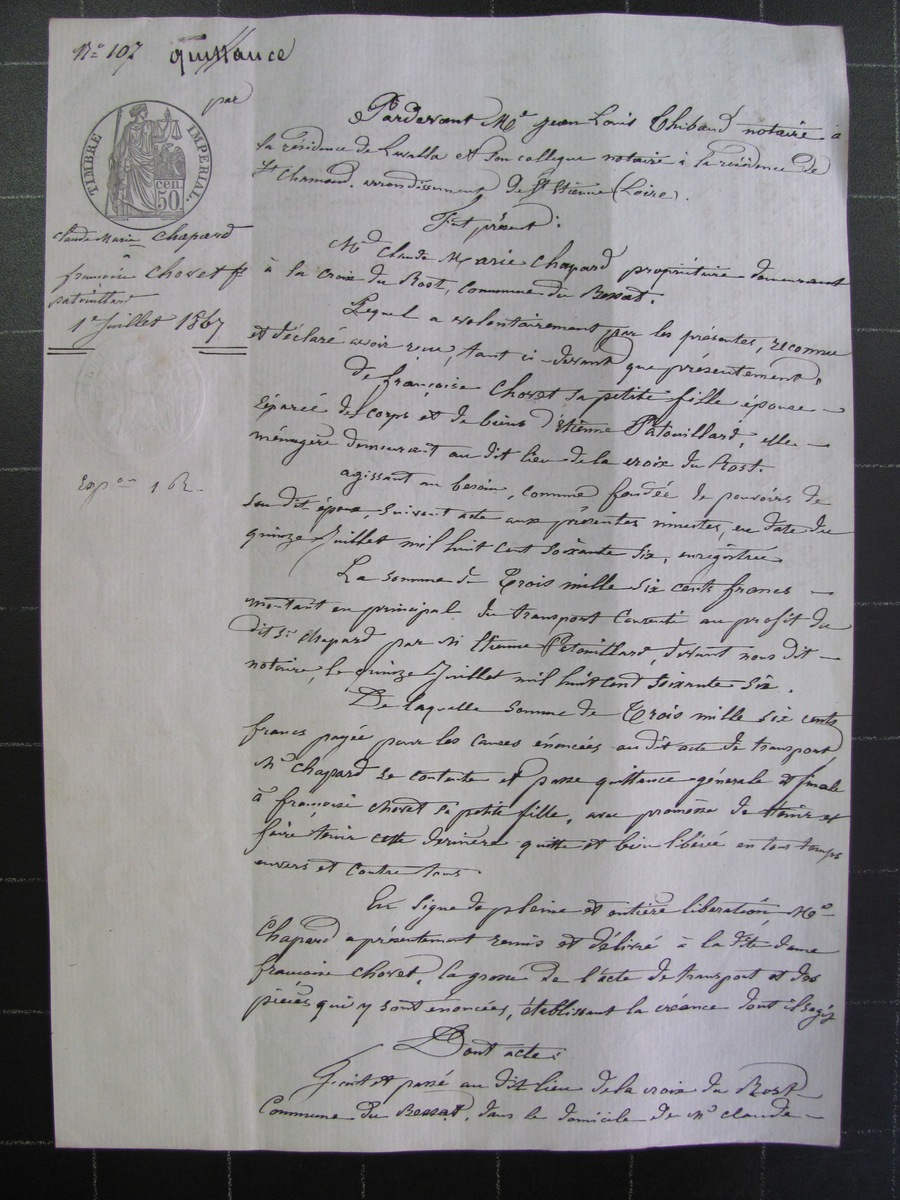 N° 107 quittance
par
TIMBRE IMPERIAL
50 CEN.
Claude Marie Chapard
à
françoise Chovet fe
patouillard
1er Juillet 1867
Expon 1 R
Pardevant Me Jean Louis Thibaud notaire à
la résidence de Lavalla et son collègue notaire à la résidence de
St Chamond, arrondissement de St Etienne (Loire).
Fut présent :
Mr Claude Marie Chapard propriétaire demeurant
à la croix du Rost, commune du Bessat.
Lequel a volontairement par les présentes, reconnu
et déclaré avoir reçu, tant ci-devant que présentement,
De françoise Chovet sa petite fille épouse
séparée de corps et de biens d'Etienne Patouillard, elle
ménagère demeurant au dit lieu de la croix du Rost.
agissant au besoin, comme fondée de pouvoirs de
son dit époux, suivant acte aux présentes minutes, en date du
quinze Juillet mil huit cent soixante six, enregistré
La somme de Trois mille six cents francs
montant en principal du transport consenti au profit du
dit sr Chapard par M Etienne Patouillard, devant nous dit
notaire, le quinze Juillet mil huit cent soixante six.
De laquelle somme de Trois mille six cents
francs payée pour les causes énoncées au dit acte de transport
Mr Chapard se contente et passe quittance générale et finale
à françoise chovet sa petite fille, avec promesse de tenir et
faire tenir cette dernière quitte et bien libérée en tous temps
envers et contre tous
En signe de pleine et entière libération, Mr
Chapard a présentement remis et délivré à la dite dame
françoise Chovet, la grosse de l'acte de transport et des
pièces qui y sont énoncées, établissant la créance dont il s'agit
Dont acte :
Fait et passé au dit lieu de la croix du Rost
Commune du Bessat, dans le domicile de Mr claude